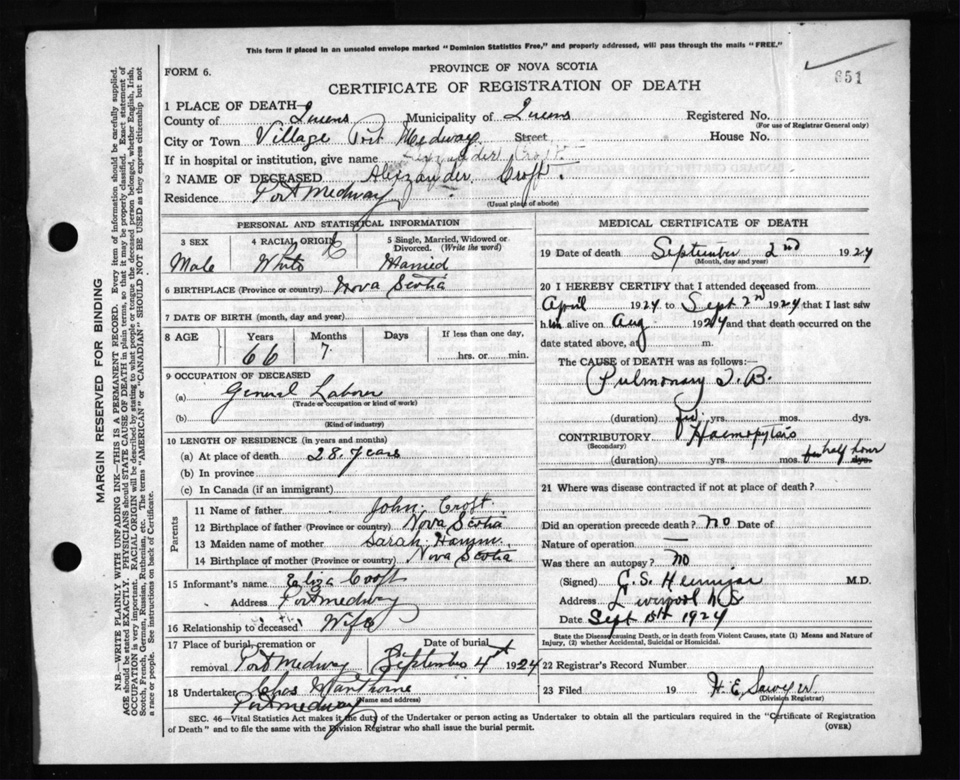 This form if placed in an unsealed envelope marked "Dominion Statistics Free," and properly addressed, will pass through the mails "FREE."
851
FORM 6.
PROVINCE OF NOVA SCOTIA
CERTIFICATE OF REGISTRATION OF DEATH
1 PLACE OF DEATH—
County of Queens Municipality of Queens Registered No.
(For use of Registrar General only)
City or Town Village Port Medway Street House No.
If in hospital or institution, give name Alexander Croft
2 NAME OF DECEASED Alexzander Croft.
Residence Port Medway
(Usual place of abode)
PERSONAL AND STATISTICAL INFORMATION
3 SEX 4 RACIAL ORIGIN 5 Single, Married, Widowed or Divorced. (Write the word)
Male White Married
6 BIRTHPLACE (Province or country) Nova Scotia
7 DATE OF BIRTH (month, day and year)
8 AGE Years Months Days If less than one day,
66 7 hrs. or min.
9 OCCUPATION OF DECEASED
(a) General Laborer
(Trade or occupation or kind of work)
(b)
(Kind of industry)
10 LENGTH OF RESIDENCE (in years and months)
(a) At place of death 28 years
(b) In province
(c) In Canada (if an immigrant)
Parents
11 Name of father John Croft.
12 Birthplace of father (Province or country) Nova Scotia
13 Maiden name of mother Sarah
14 Birthplace of mother (Province or country) Nova Scotia
15 Informant's name Eliza Croft
Address Port Medway
16 Relationship to deceased Wife
17 Place of burial, cremation or Date of burial
removal Port Medway September 4 1924
18 Undertaker Chas
(Name and address)
Port medway
MEDICAL CERTIFICATE OF DEATH
19 Date of death September 2nd 1924
(Month, day and year)
20 I HEREBY CERTIFY that I attended deceased from
April 1924 to Sept 2nd 1924 that I last saw
him alive on Aug 1924 and that death occurred on
date stated above, at m.
The CAUSE of DEATH was as follows:—
Pulmonary T.B.
(duration) yrs. mos. dys.
CONTRIBUTORY Haemoptysis
(Secondary)
(duration) yrs. mos. half hour dys.
21 Where was disease contracted if not at place of death?
Did an operation precede death? No Date of
Nature of operation —
Was there an autopsy? No
(Signed) C. S. M.D.
Address Liverpool N S
Date Sept 1924
State the Disease causing Death, or in death from Violent Causes, state (1) Means and Nature of
Injury, (2) whether Accidental, Suicidal or Homicidal.
22 Registrar's Record Number
23 Filed 19 H. E. Sawyer.
(Division Registrar)
SEC. 46—Vital Statistics Act makes it the duty of the Undertaker or person acting as Undertaker to obtain all the particulars required in the "Certificate of Registration
of Death" and to file the same with the Division Registrar who shall issue the burial permit.
(OVER)
MARGIN RESERVED FOR BINDING
N.B.—WRITE PLAINLY WITH UNFADING INK—THIS IS A PERMANENT RECORD. Every item of information should be carefully supplied.
AGE should be stated EXACTLY. PHYSICIANS should STATE CAUSE OF DEATH in plain terms, so that it may be properly classified. Exact statement of
OCCUPATION is very important. RACIAL ORIGIN will be described by stating to what people or tongue the deceased person belonged, whether English, Irish,
Scotch, French, German, Russian, Ruthenian, etc. The terms "AMERICAN" or "CANADIAN" SHOULD NOT BE USED as they express citizenship but not
a race or people. See instructions on back of Certificate.